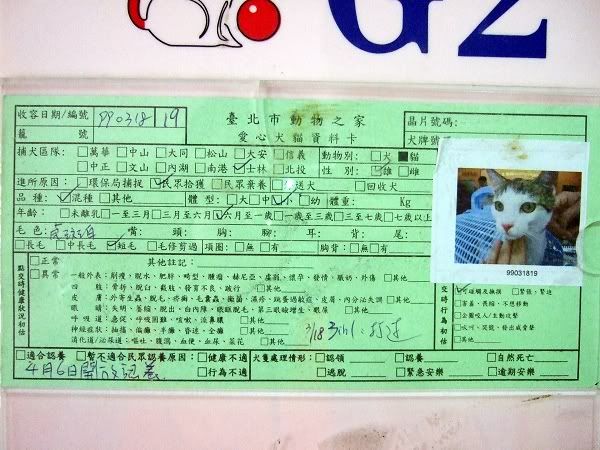 G2
收容日期/編號 990318 19 臺北市動物之家 晶片號碼:
籠 號 愛心犬貓資料卡 犬牌號
捕犬區隊: □萬華 □中山 □大同 □松山 □大安 □信義 動物別: □犬 ■貓
□中正 □文山 □內湖 □南港 ☑士林 □北投 性 別: 雄 □雌
進所原因: □環保局捕捉 ☑民眾拾獲 □民眾棄養 □送犬 □回收犬
品種: ☑混種 □其他 體型: □大 □中 ☑小 □幼 體重: Kg
年齡: □未離乳 □一至三月 □三月至六月 ☑六月至一歲 □一至三歲 □三至七歲 □七歲以上
毛色: 虎斑白 嘴: 頭: 胸: 腳: 耳: 背: 尾:
□長毛 □中長毛 ☑短毛 □毛修剪過 項圈: □無 □有 胸背: □無 □有
99031819
點交時健康狀況初估
□正常 其他註記:
□異常 一般外表: 削瘦、脫水、肥胖、畸型、腫瘤、赫尼亞、虛弱、懷孕、發情、脹奶、外傷 □其他
四 肢: 骨折、脫臼、截肢、發育不良、跛行 □其他
皮 膚: 外寄生蟲、脫毛、疥癬、毛囊蟲、黴菌、濕疹、跳蚤過敏症、皮屑、內分泌失調 □其他
眼 睛: 失明、萎縮、脫出、白內障、眼瞼脫毛、第三眼瞼增生、眼屎 □其他
呼吸道: 急促、呼吸困難、咳嗽、流鼻膿 □其他
神經症狀: 抽搐、偏癱、半癱、昏迷、全癱 □其他
消化道/泌尿道: 嘔吐、腹瀉、血便、血尿、菜花 □其他
3/18
交時行為初估
☑可碰觸及撫摸 □緊張、緊迫
□害羞、畏縮、不思移動
□企圖咬人/主動攻擊
□低吼、哭號、發出威脅聲
□其他
□適合認養 □暫不適合民眾認養原因: □健康不適 犬隻處理情形: □認領 □認養 □自然死亡
4月6日開放認養 □行為不適 □逃脫 □緊急安樂 □逾期安樂